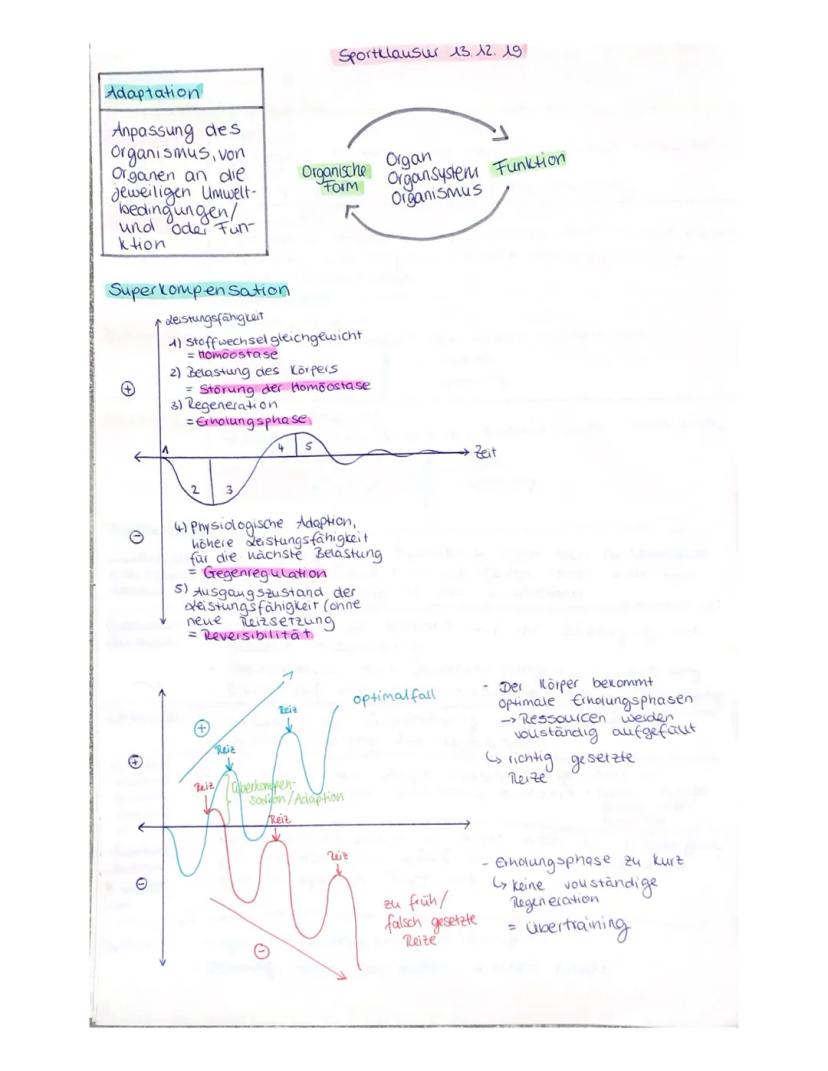 Sportklausur 13.12.19
Adaptation
Anpassung des
Organismus, von
Organen an die
jeweiligen Umwelt-
bedingungen/
und oder Fun-
ktion
Organische
Form
Organ
Organsystem
Organismus
Funktion
Superkompensation
Leistungsfähigkeit
1) Stoffwechselgleichgewicht
= Homöostase
2) Belastung des Körpers
= Störung der Homöostase
3) Regeneration
= Erholungsphase
+
1
4 5
Zeit
2 3
-
4) Physiologische Adaption,
höhere Leistungsfähigkeit
für die nächste Belastung
= Gegenregulation
5) Ausgangszustand der
Leistungsfähigkeit (ohne
neue Reizsetzung
= Reversibilität
optimalfall
Reiz
+
Reiz
+
Reiz
Überkompen-
sation/Adaption
Reiz
Reiz
-
zu früh/
falsch gesetzte
Reize
-
- Der Körper bekommt
optimale Erholungsphasen
→ Ressourcen werden
vollständig aufgefüllt
↳ richtig gesetzte
Reize
- Erholungsphase zu kurz
↳ keine vollständige
Regeneration
= Übertraining